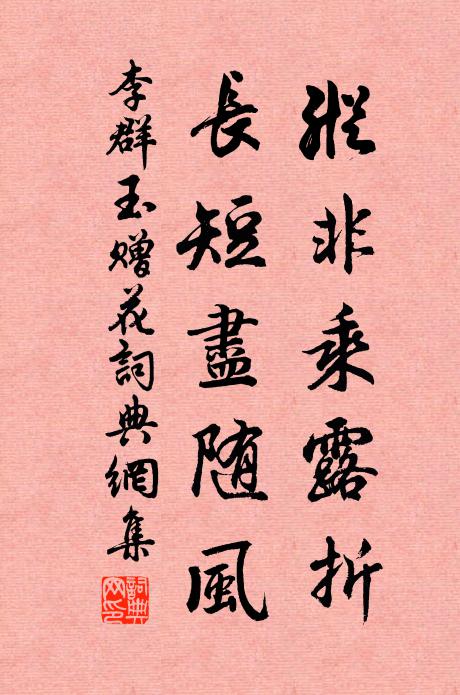 縱非乘露折
長短盡隨風
李群玉贈花詞典網集
詞典網印